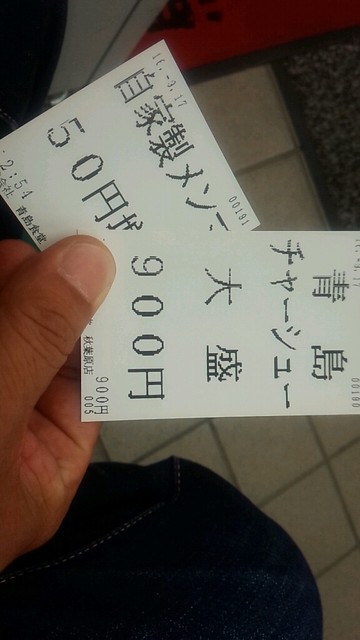 16.-9.17
自家製メンマ
50円
00191
2:54
青島食堂
青島
チャーシュー
大盛
900円
00190
秋葉原店
900円
005